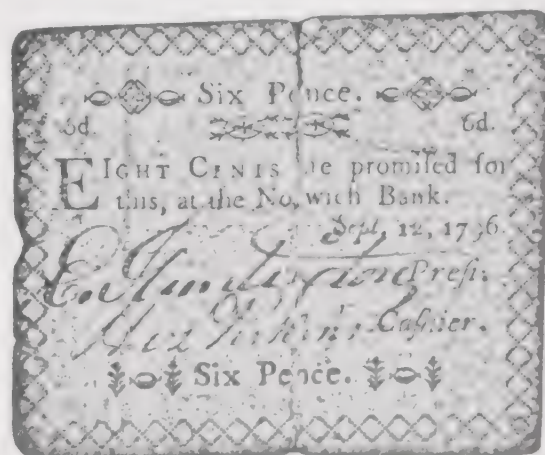 Six Pence.
6d. 6d.
EIGHT CENTS are promiſed for
this, at the Norwich Bank.
Sept. 12, 1796.
E. Huntington Preſt.
Perkins Caſhier.
Six Pence.